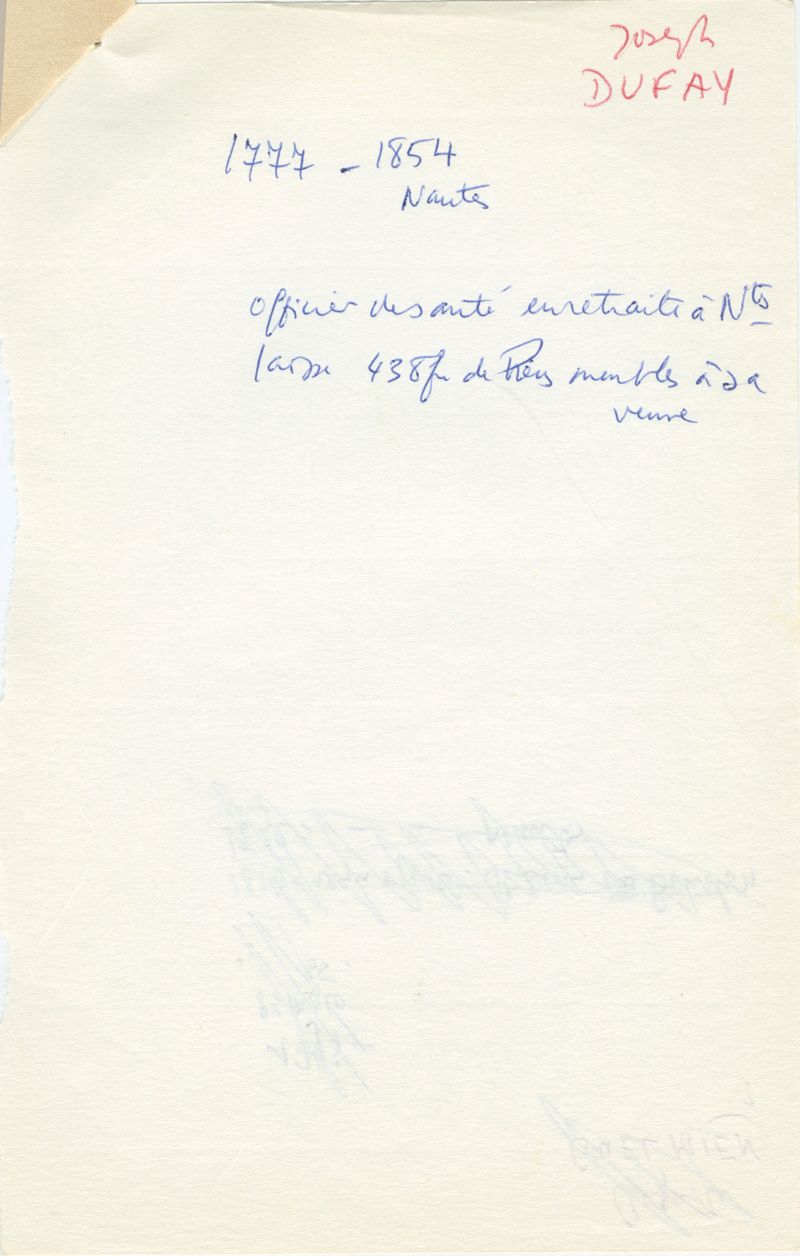 Joseph
DUFAY
1777 - 1854
Nantes
officier de santé en retraite à Nts
laisse 438 fr de biens meubles à sa
veuve